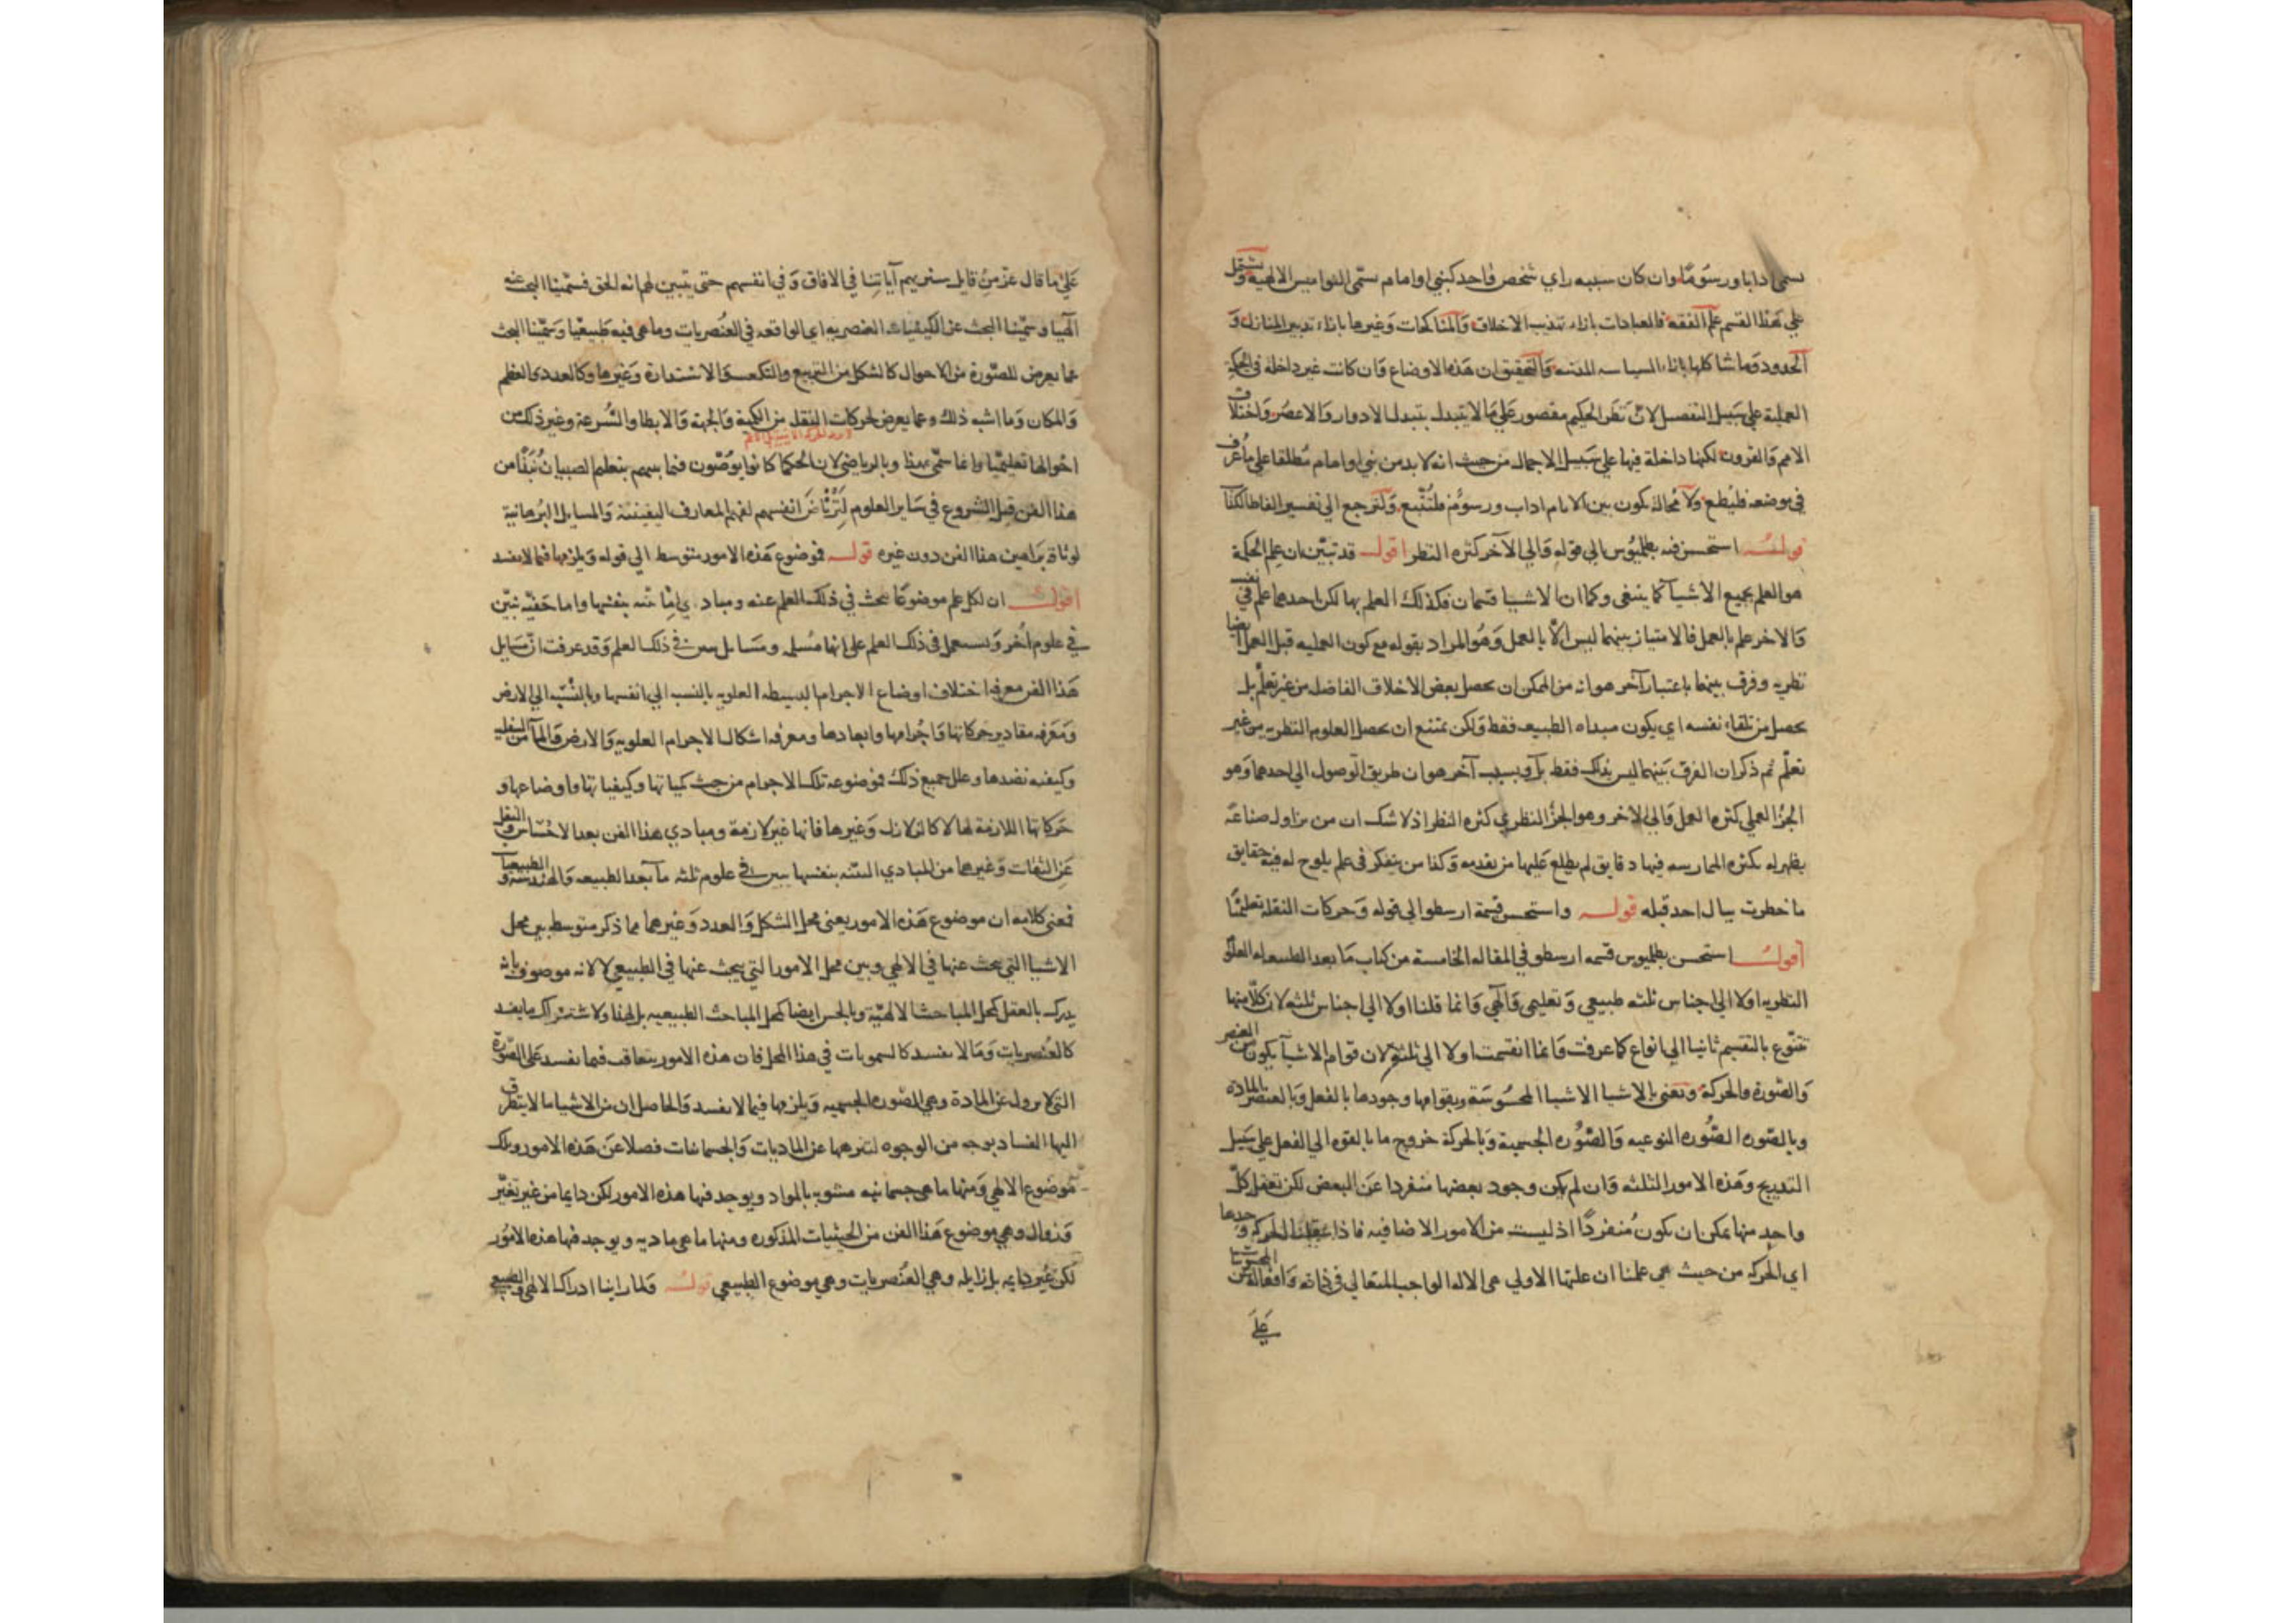 يسمى ادابا ورسوما وان كان سببه راي شخص واحد كنبي او امام سمى النواميس الالهية ويشتمل
علي هذا القسم علم الفقه فالعبادات بازاء تهذيب الاخلاق والمناكحات وغيرها بازاء تدبير المنازل و
الحدود وما شاكلها بازاء السياسه المدنيه والتحقيق ان هذه الاوضاع وان كانت غير داخلة في الحكمة
العملية علي سبيل التفصيل لان نظر الحكيم مقصور علي ما لا يتبدل بتبدل الادوار والاعصر واختلاف
الامم والقرون لكنها داخلة فيها علي سبيل الاجمال من حيث انه لا بد من نبي او امام مطلقا علي ما عرف
في موضعه فليطع ولا محالة يكون بين الانام اداب ورسوم فلتتبع ولنرجع الي تفسير الفاظ الكتاب
قوله استحسن فيه بطلميوس الي قوله والي الآخر كثره النظر اقول قد تبين ان علم الحكمة
هو العلم بجميع الاشيآ كما ينبغى وكما ان الاشيا قسمان فكذلك العلم بها لكن احدهما علم في نفسه
والاخر علم بالعمل فالامتياز بينهما ليس الا بالعمل وهو المراد بقوله مع كون العمليه قبل العمل ايضا
نظريه وفرق بينهما باعتبار آخر هو انه من الممكن ان يحصل بعض الاخلاق الفاضله من غير تعلم بل
يحصل من تلقاء نفسه اي يكون مبداه الطبيعه فقط ولكن يمتنع ان يحصل العلوم النظريه من غير
تعلم ثم ذكر ان الفرق بينهما ليس بذلك فقط بل وبسبب آخر هو ان طريق الوصول الي احدهما وهو
الجزء العملي كثره العمل والي الاخر وهو الجزء النظري كثره النظر اذ لا شك ان من يزاول صناعة
يظهر له بكثره الممارسه فيها دقايق لم يطلع عليها من تقدمه وكذا من يتفكر في علم يلوح له فيه حقايق
ما خطرت ببال احد قبله قوله واستحسن قسمة ارسطو الي قوله وحركات النقلة تعليميا
اقول استحسن بطلميوس قسمه ارسطو في المقاله الخامسة من كتاب ما بعد الطبيعه العلوم
النظريه اولا الي اجناس ثلثه طبيعي وتعليمي وآلهي وانما قلنا اولا الي اجناس ثلثه لان كلا منها
تتنوع بالتقسيم ثانيا الي انواع كما عرفت وانما انقسمت اولا الي ثلثة لان قوام الاشيآ يكون من العنصر
والصورة والحركة ونعني بالاشيا الاشيا المحسوسة وبقوامها وجودها بالفعل وبالعنصر المادة
وبالصوره الصوره النوعيه والصوره الجسمية وبالحركة خروج ما بالقوه الي الفعل علي سبيل
التدريج وهذه الامور الثلثه وان لم يكن وجود بعضها منفردا عن البعض لكن تعقل كل
واحد منها يمكن ان يكون منفردا اذ ليست من الامور الاضافيه فاذا عقلنا الحركه وحدها
اي الحركه من حيث هي علمنا ان علتها الاولي هي الاله الواجب المتعالي في ذاته وافعاله عن المحسوسات
علي
علي ما قال عز من قايل سنريهم آياتنا في الافاق وفي انفسهم حتى يتبين لهم انه الحق فسمينا البحث عنه
آلهيا وسمينا البحث عن الكيفيات العنصريه اي الواقعه في العنصريات وما هي فيه طبيعيا وسمينا البحث
عما يعرض للصورة من الاحوال كالشكل من التربيع والتكعب والاستدارة وغيرها وكالعدد والعظم
والمكان وما اشبه ذلك وعما يعرض لحركات النقله من الكمية والجهة والابطا والسرعة وغير ذلك من
احوالها تعليميا وانما سمى بهذا وبالرياضي لان الحكما كانوا يوصون فيما بينهم بتعليم الصبيان نبذا من
هذا الفن قبل الشروع في ساير العلوم لترتاض انفسهم لفهم المعارف اليقينية والمسايل البرهانية
لوثاقة براهين هذا الفن دون غيره قوله فموضوع هذه الامور متوسط الي قوله ويلزمها فيما لا يفسد
اقول ان لكل علم موضوعا يبحث في ذلك العلم عنه ومبادي اما بينة بنفسها واما خفيه تبين
في علوم اخر ويستعمل في ذلك العلم على انها مسلمه ومسايل تبين في ذلك العلم وقد عرفت ان مسايل
هذا الفن معرفه اختلاف اوضاع الاجرام البسيطه العلويه بالنسب الي انفسها وبالنسبه الي الارض
ومعرفه مقادير حركاتها واجرامها وابعادها ومعرفه اشكال الاجرام العلويه والارض والمآ من السفليه
وكيفيه نضدها وعلل جميع ذلك فموضوعه تلك الاجرام من حيث كمياتها وكيفياتها واوضاعها و
حركاتها اللازمة لها لا كالزلازل وغيرها فانها غير لازمة ومبادي هذا الفن بعد الاحساس والنقل
عن الثقات وغيرهما من المبادي البينه بنفسها يبين في علوم ثلثه ما بعد الطبيعه والهندسه والطبيعيات
فمعنى كلامه ان موضوع هذه الامور يعني محل الشكل والعدد وغيرهما مما ذكر متوسط بين محل
الاشيا التي يبحث عنها في الالهي وبين محل الامور التي يبحث عنها في الطبيعي لا لانه موصوف بانه
يدرك بالعقل كمحل المباحث الالهية وبالحس ايضا كمحل المباحث الطبيعيه بل لهذا ولاشتراك ما يفسد
كالعنصريات وما لا يفسد كالسمويات في هذا المحل فان هذه الامور يتعاقب فيما يفسد على الصورة
التي لا يزول عن المادة وهي الصوره الجسميه ويلزمها فيما لا يفسد والحاصل ان من الاشيا ما لا يتطرق
اليها الفساد بوجه من الوجوه لتنزهها عن الماديات والجسمانيات فضلا عن هذه الامور وتلك
موضوع الالهي ومنها ما هي جسمانيه مشوبه بالمواد ويوجد فيها هذه الامور لكن دايما من غير تغير
وزوال وهي موضوع هذا الفن من الحيثيات المذكوره ومنها ما هي ماديه ويوجد فيها هذه الامور
لكن غير دايمه بل زايله وهي العنصريات وهي موضوع الطبيعي قوله ولما راينا ادراك الالهي والطبيعي